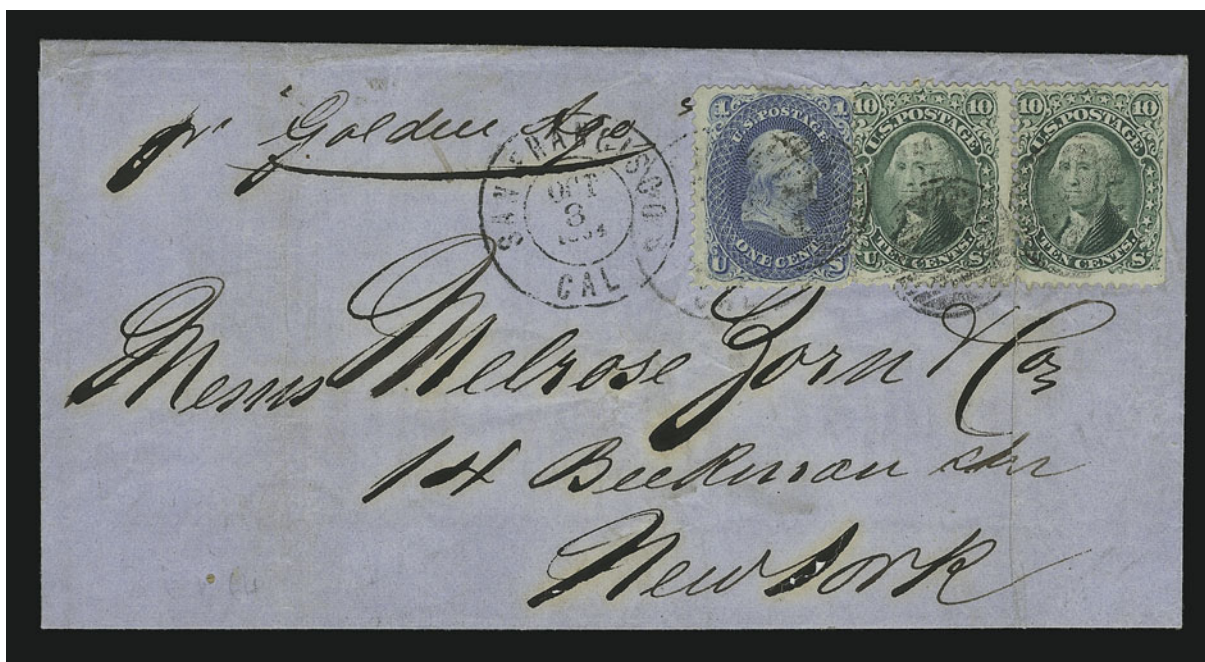 pr "Golden Age"
SAN FRANCISCO
OCT
8
1864
CAL
1 1
U.S. POSTAGE
ONE CENT.
U S
10 10
U.S. POSTAGE
TEN CENTS.
U S
10 10
U.S. POSTAGE
TEN CENTS.
U S.
Messrs Melrose Zorn & Co
14 Beekman
New York